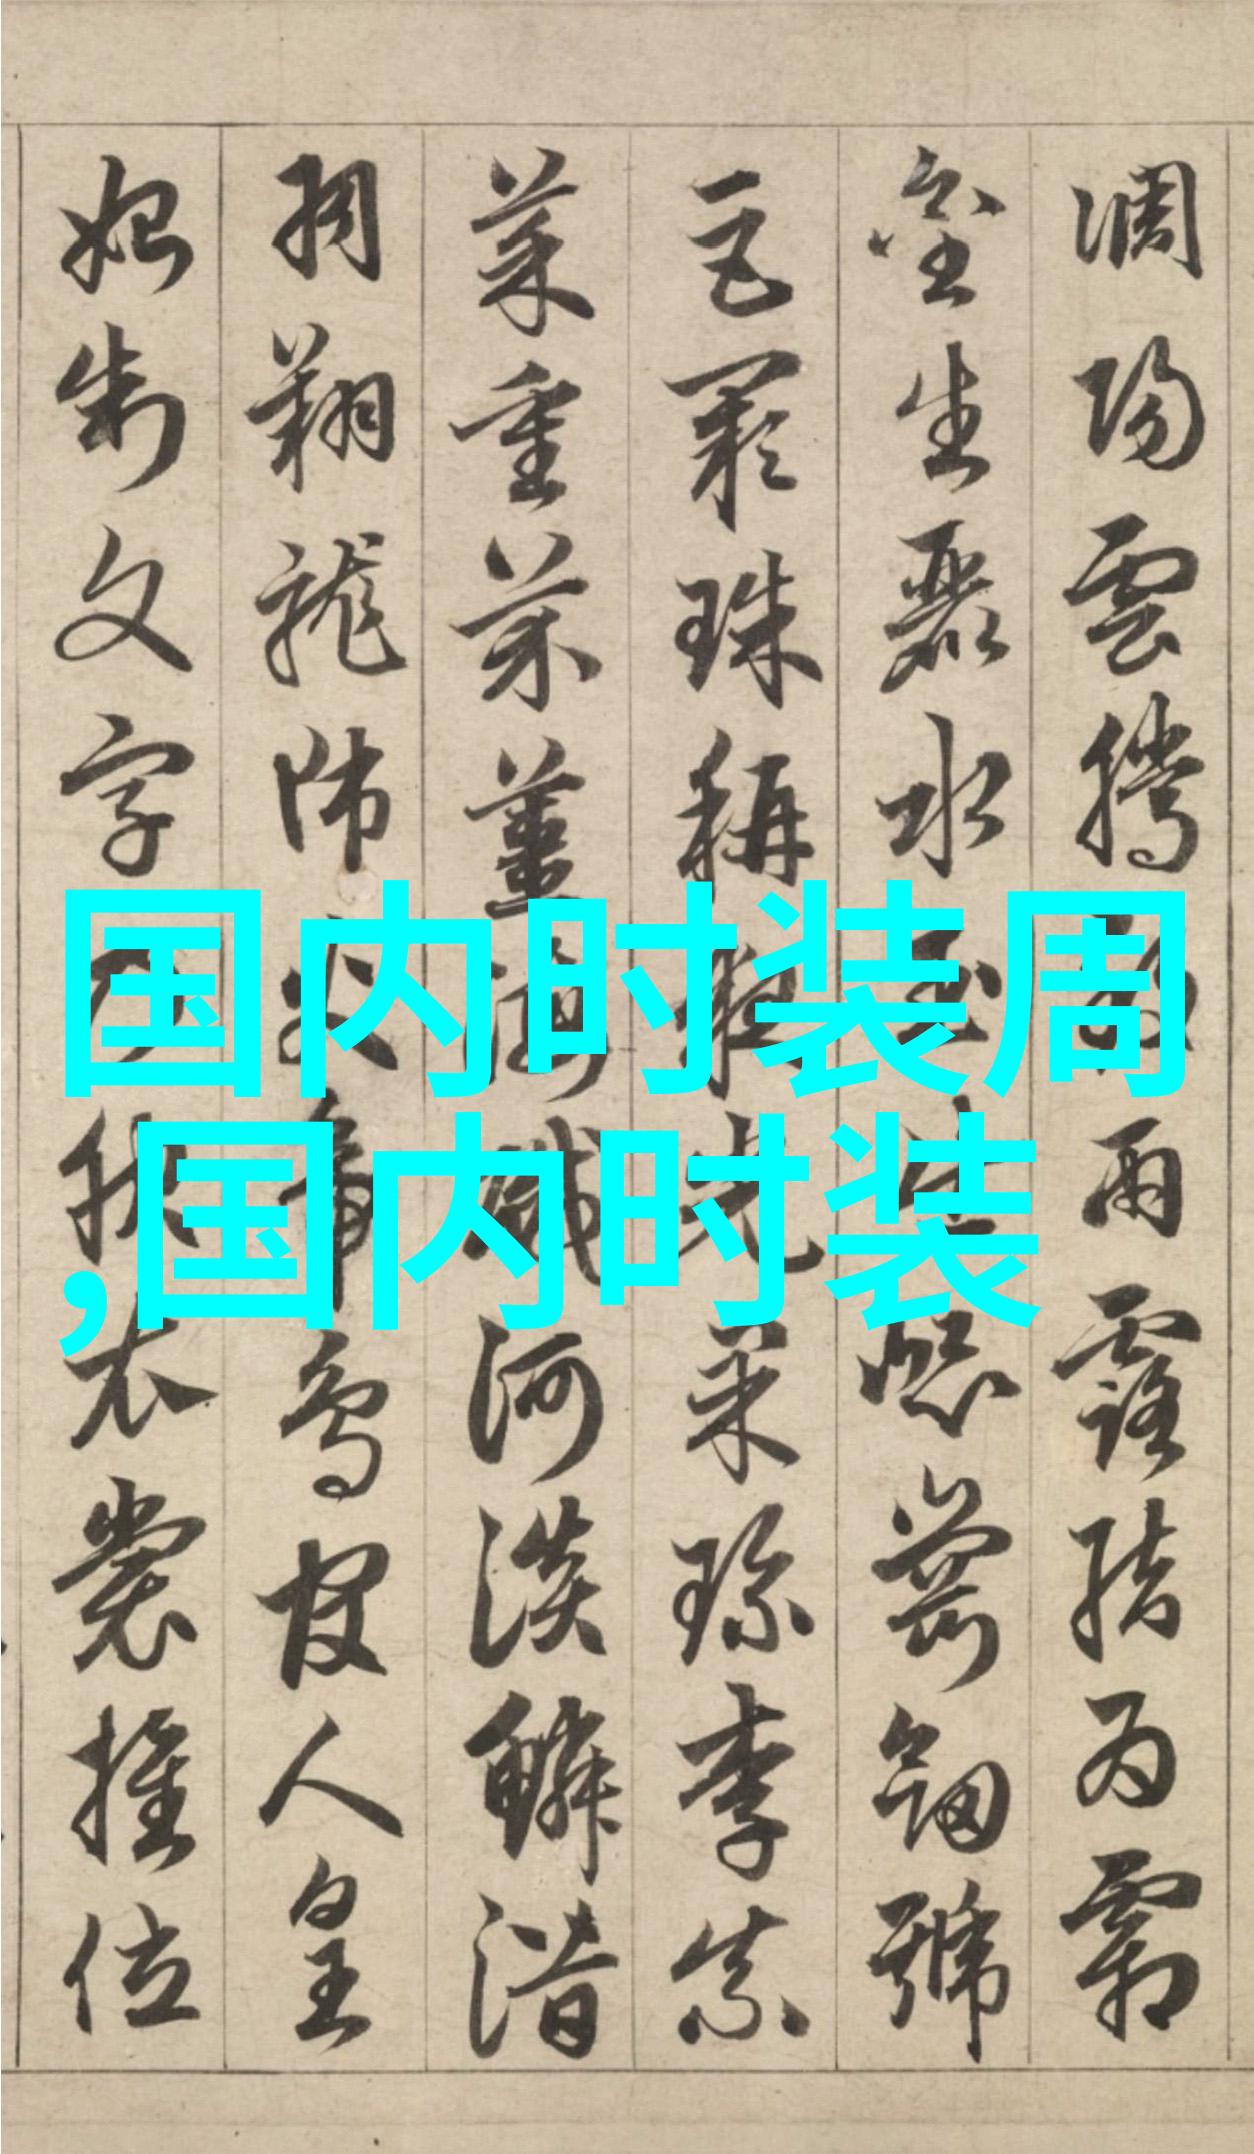 調陽雲騰致雨露結為霜
金生麗水玉出崑崗劍號
巨闕珠稱夜光果珍李柰
菜重芥薑海鹹河淡鱗潛
羽翔龍師火帝鳥官人皇
始制文字乃服衣裳推位
国内时装周
,国内时装